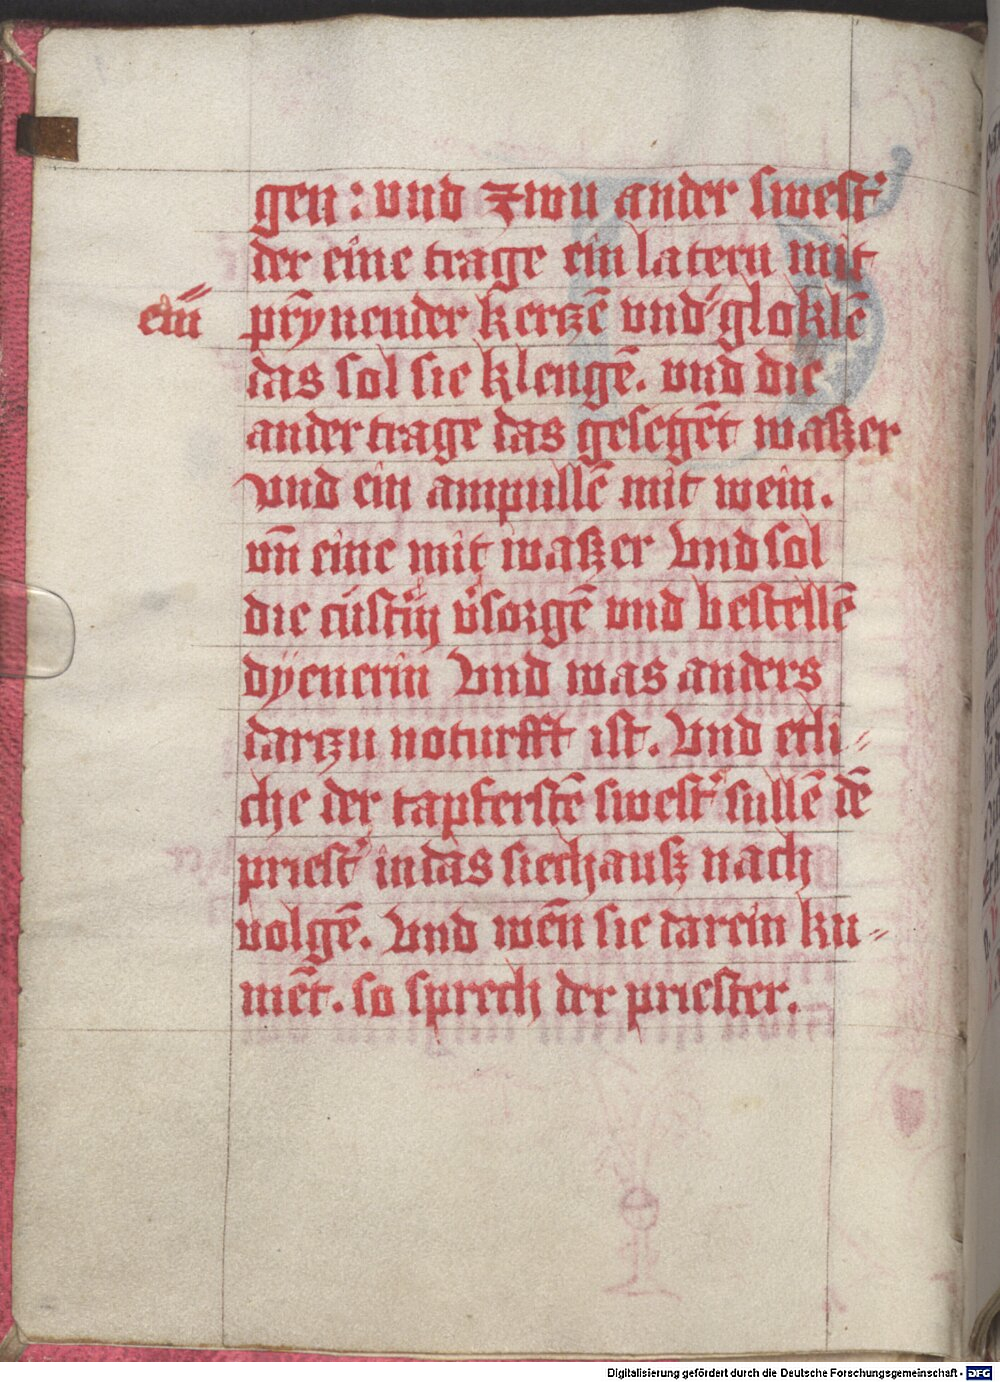 gen : vnd zwu ander swest᾽
der eine trage ein latern mit
prȳnender kerczē vnd ˶ gloklē
ein ˶
das sol sie klengē. vnd die
ander trage das gesegēt waßer
vnd ein ampullē mit wein.
vn̄ eine mit waßer Vnd sol
die cüstrin v᾽sorgē vnd bestellē
dÿenerin Vnd was anders
darczu noturfft ist. Vnd etli⸗
che der tapferstē swest᾽ sullē dē
priest᾽ in das siechauß nach
volgē. Vnd wēn sie darein ku⸗
mēt. so sprech der priester.
Digitalisierung gefördert durch die Deutsche Forschungsgemeinschaft - DFG